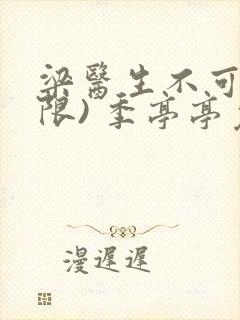 梁醫生不可
限) 季亭亭
漫遲遲